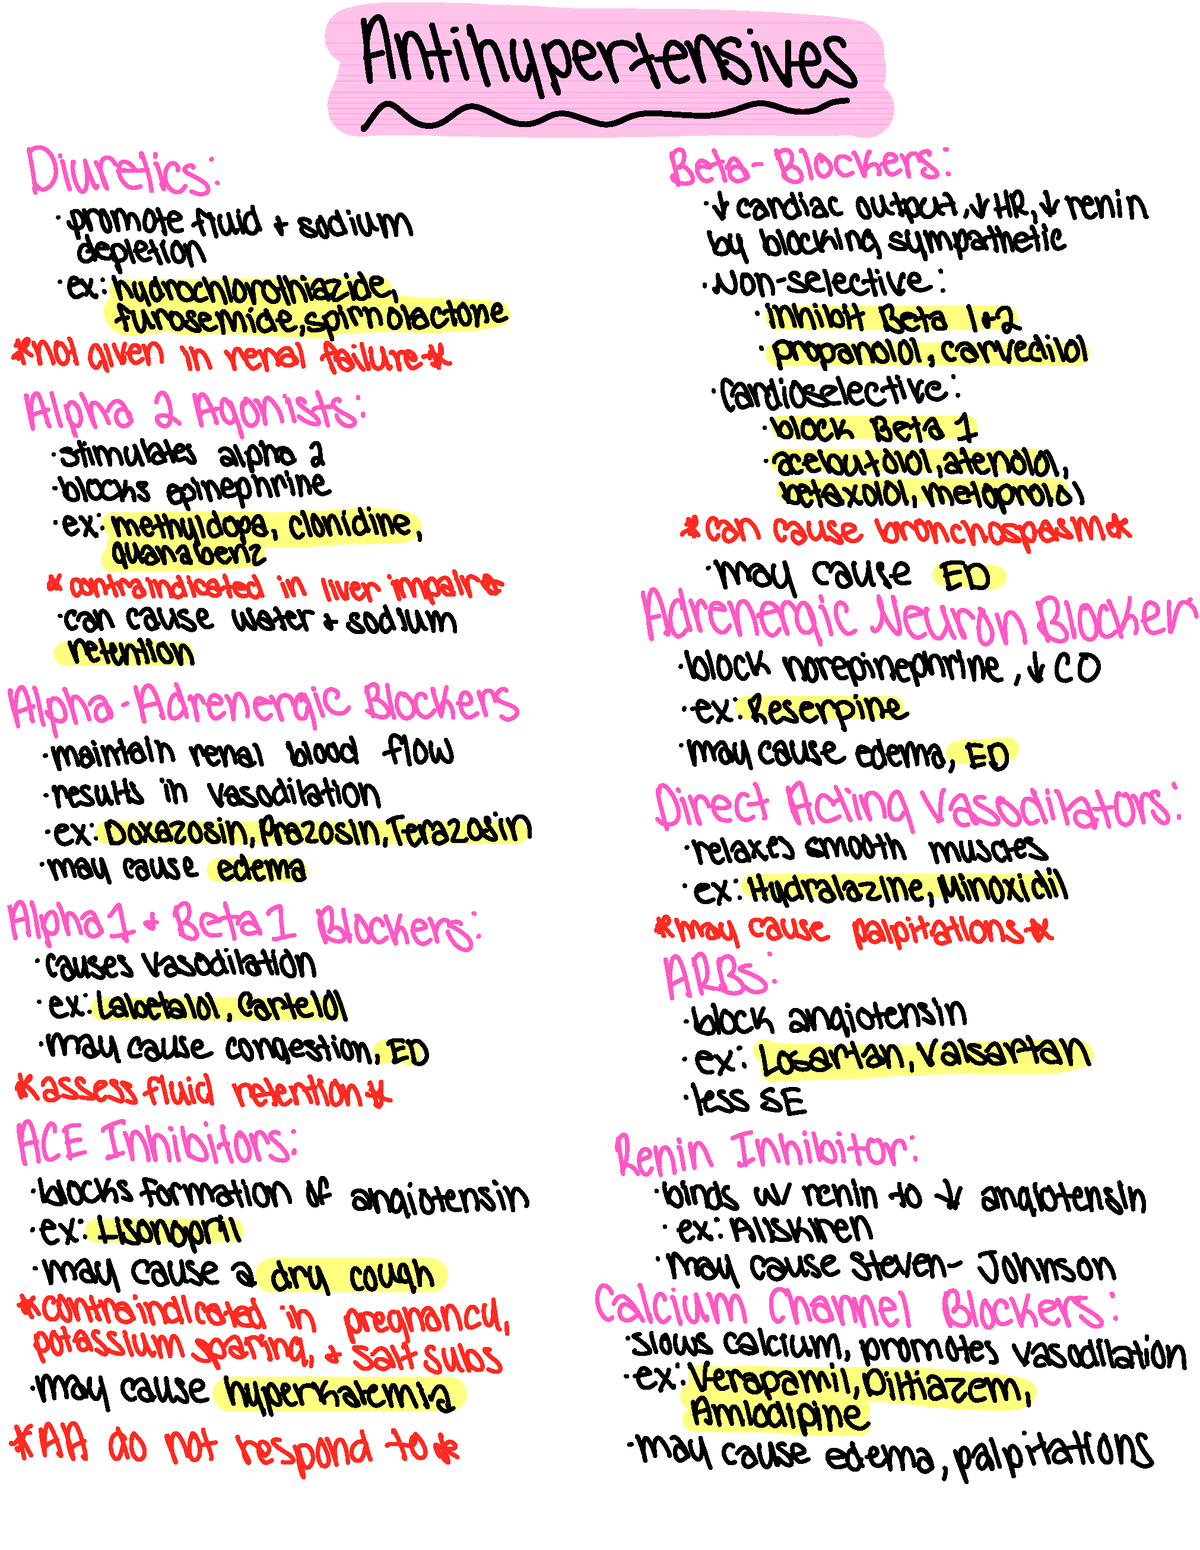 Antihypertensives
Diuretics:
·promote fluid + sodium
depletion
·ex: hydrochlorothiazide,
furosemide, spirnolactone
*not given in renal failure*
Alpha 2 Agonists:
·stimulates alpha 2
·blocks epinephrine
·ex: methyldopa, clonidine,
guanabenz
*contraindicated in liver impair*
·can cause water + sodium
retention
Alpha-Adrenergic Blockers
·maintain renal blood flow
·results in vasodilation
·ex: Doxazosin, Prazosin, Terazosin
·may cause edema
Alpha 1 + Beta 1 Blockers:
·causes vasodilation
·ex: Labetalol, Cartelol
·may cause congestion, ED
*assess fluid retention*
ACE Inhibitors:
·blocks formation of angiotensin
·ex: Lisonopril
·may cause a dry cough
*contraindicated in pregnancy,
potassium sparing, + salt subs
·may cause hyperkalemia
*AA do not respond to*
Beta-Blockers:
·↓ cardiac output, ↓ HR, ↓ renin
by blocking sympathetic
·Non-selective:
·inhibit Beta 1+2
·propanolol, carvedilol
·Cardioselective:
·block Beta 1
·acebutolol, atenolol,
betaxolol, metoprolol
*can cause bronchospasm*
·may cause ED
Adrenergic Neuron Blocker
·block norepinephrine, ↓ CO
·ex: Reserpine
·may cause edema, ED
Direct Acting Vasodilators:
·relaxes smooth muscles
·ex: Hydralazine, Minoxidil
*may cause palpitations*
ARBs:
·block angiotensin
·ex: Losartan, Valsartan
·less SE
Renin Inhibitor:
·binds w/ renin to ↓ angiotensin
·ex: Aliskiren
·may cause Steven-Johnson
Calcium Channel Blockers:
·slows calcium, promotes vasodilation
·ex: Verapamil, Diltiazem,
Amlodipine
·may cause edema, palpitations